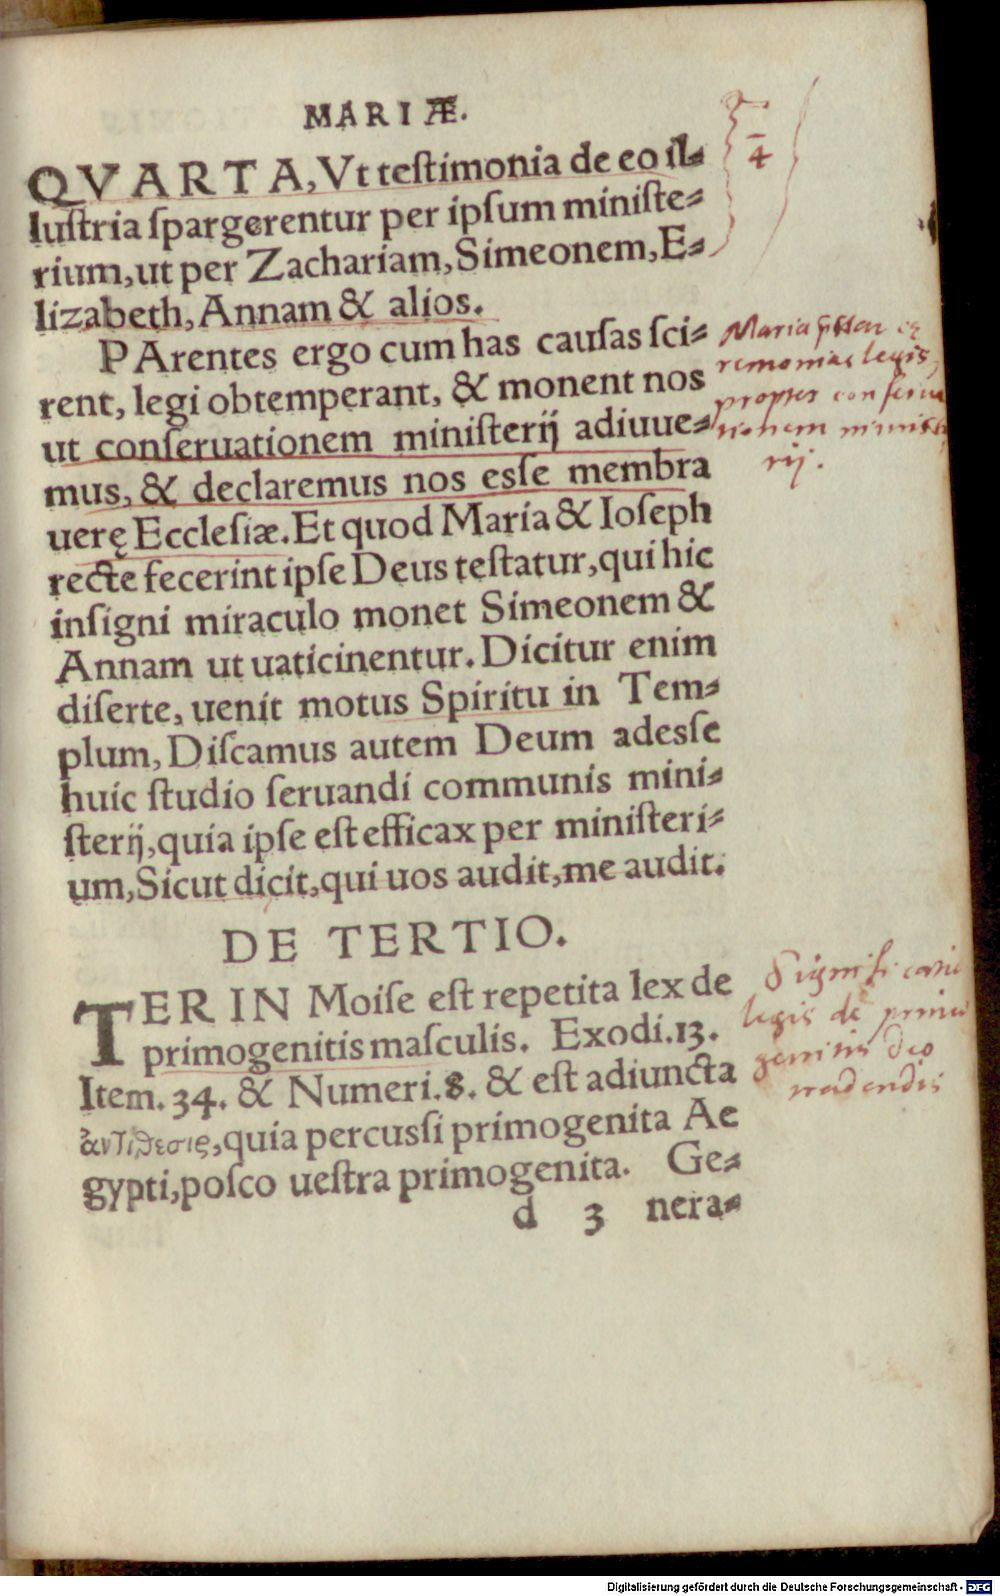 MARIÆ.
QVARTA, Vt teſtimonia de eo il-
luſtria ſpargerentur per ipſum miniſte-
rium, ut per Zachariam, Simeonem, E-
lizabeth, Annam & alios.
PArentes ergo cum has cauſas ſci-
rent, legi obtemperant, & monent nos
ut conſeruationem miniſterij adiuue-
mus, & declaremus nos eſſe membra
uerę Eccleſiæ. Et quod Maria & Ioſeph
recte fecerint ipſe Deus teſtatur, qui hic
inſigni miraculo monet Simeonem &
Annam ut uaticinentur. Dicitur enim
diſerte, uenit motus Spiritu in Tem-
plum, Diſcamus autem Deum adeſſe
huic ſtudio ſeruandi communis mini-
ſterij, quia ipſe eſt efficax per miniſteri-
um, Sicut dicit, qui uos audit, me audit.
4
Maria
remonias legis
propter conserua
tionem minist
rij.
DE TERTIO.
TER IN Moiſe eſt repetita lex de
primogenitis maſculis. Exodi. 13.
Item. 34. & Numeri. 8. & eſt adiuncta
ἀντίθεσις, quia percuſſi primogenita Ae
gypti, poſco ueſtra primogenita. Ge-
d 3 nera-
legis de primo
genitis deo
tradendis
Digitalisierung gefördert durch die Deutsche Forschungsgemeinschaft - DFG